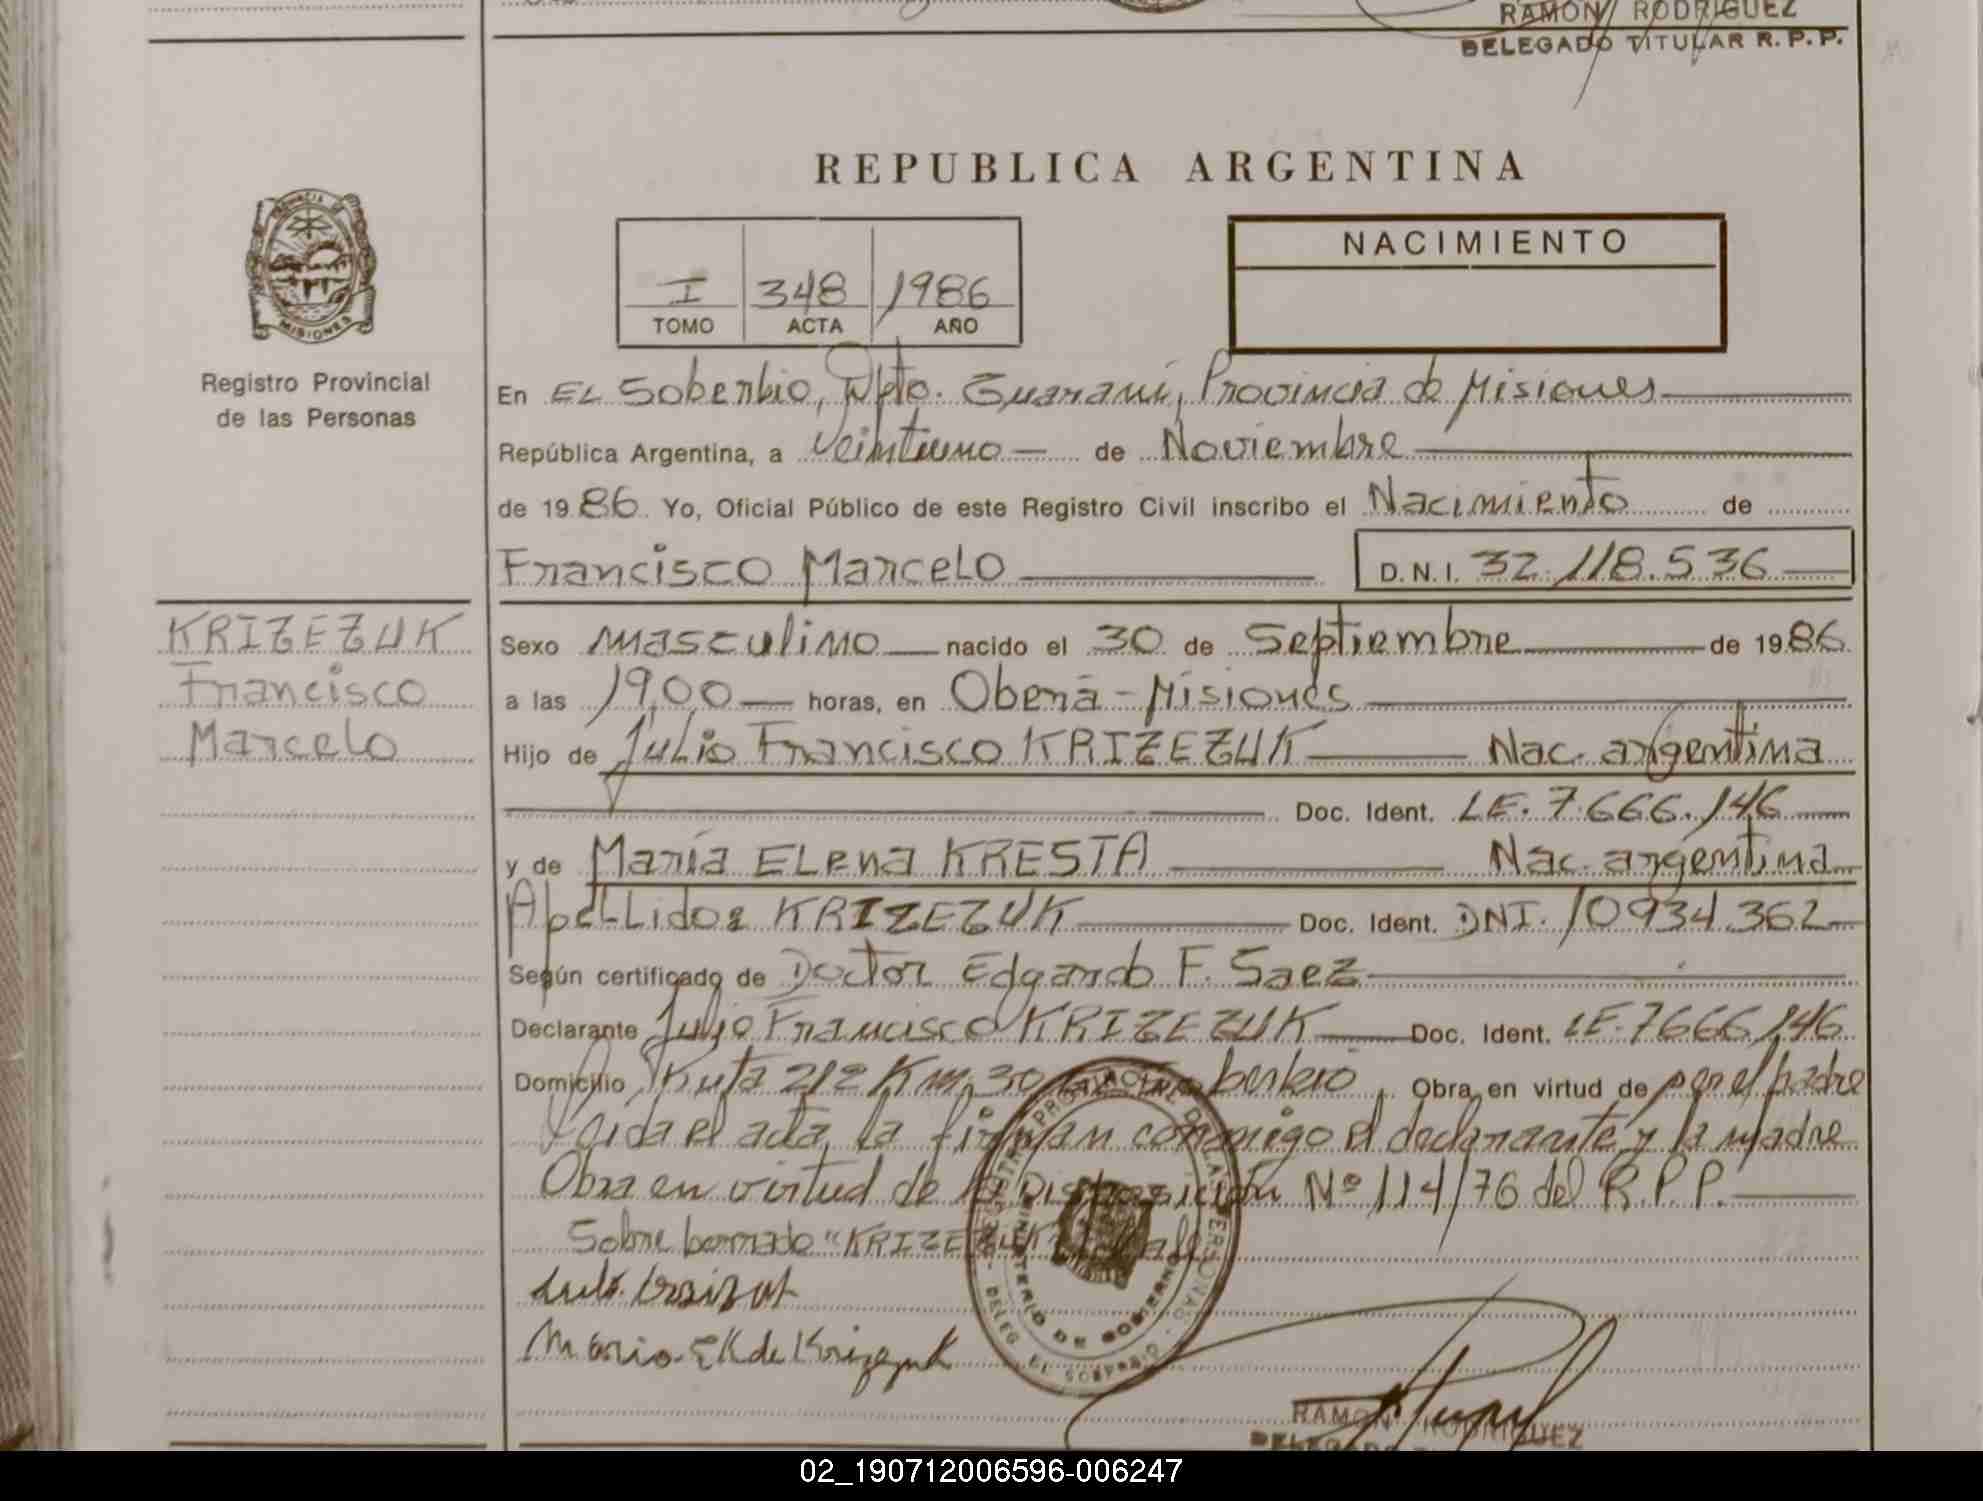 RAMON RODRIGUEZ
DELEGADO TITULAR R.P.P.
REPUBLICA ARGENTINA
MISIONES
Registro Provincial
de las Personas
I 348 1986
TOMO ACTA AÑO
NACIMIENTO
En EL Soberbio, Dpto. Guaraní, Provincia de Misiones
República Argentina, a Veintiuno de Noviembre
de 1986 Yo, Oficial Público de este Registro Civil inscribo el Nacimiento de
Francisco Marcelo D.N.I. 32.118.536
KRIZEZUK
Francisco
Marcelo
Sexo masculino nacido el 30 de Septiembre de 1986
a las 19,00 horas, en Oberá - Misiones
Hijo de Julio Francisco KRIZEZUK Nac. argentina
Doc. Ident. LE. 7.666.146
y de María ELena KRESTA Nac. argentina
ApeLLidos KRIZEZUK Doc. Ident. DNI. 10934.362
Según certificado de Doctor Edgardo F. Saez
Declarante Julio Francisco KRIZEZUK Doc. Ident. LE. 7666146
Domicilio Ruta 212 Km. 30 Obra en virtud de por el padre
Leida el acta, la firman conmigo el declarante y la madre
Obra en virtud de la Disposición Nº 114/76 del R.P.P.
Sobre borrado "KRIZEZUK" Vale
Maria E K de Krizezuk
MINISTERIO DE GOBIERNO
DELEG. EL SOBERBIO
RAMON RODRIGUEZ
02_190712006596-006247